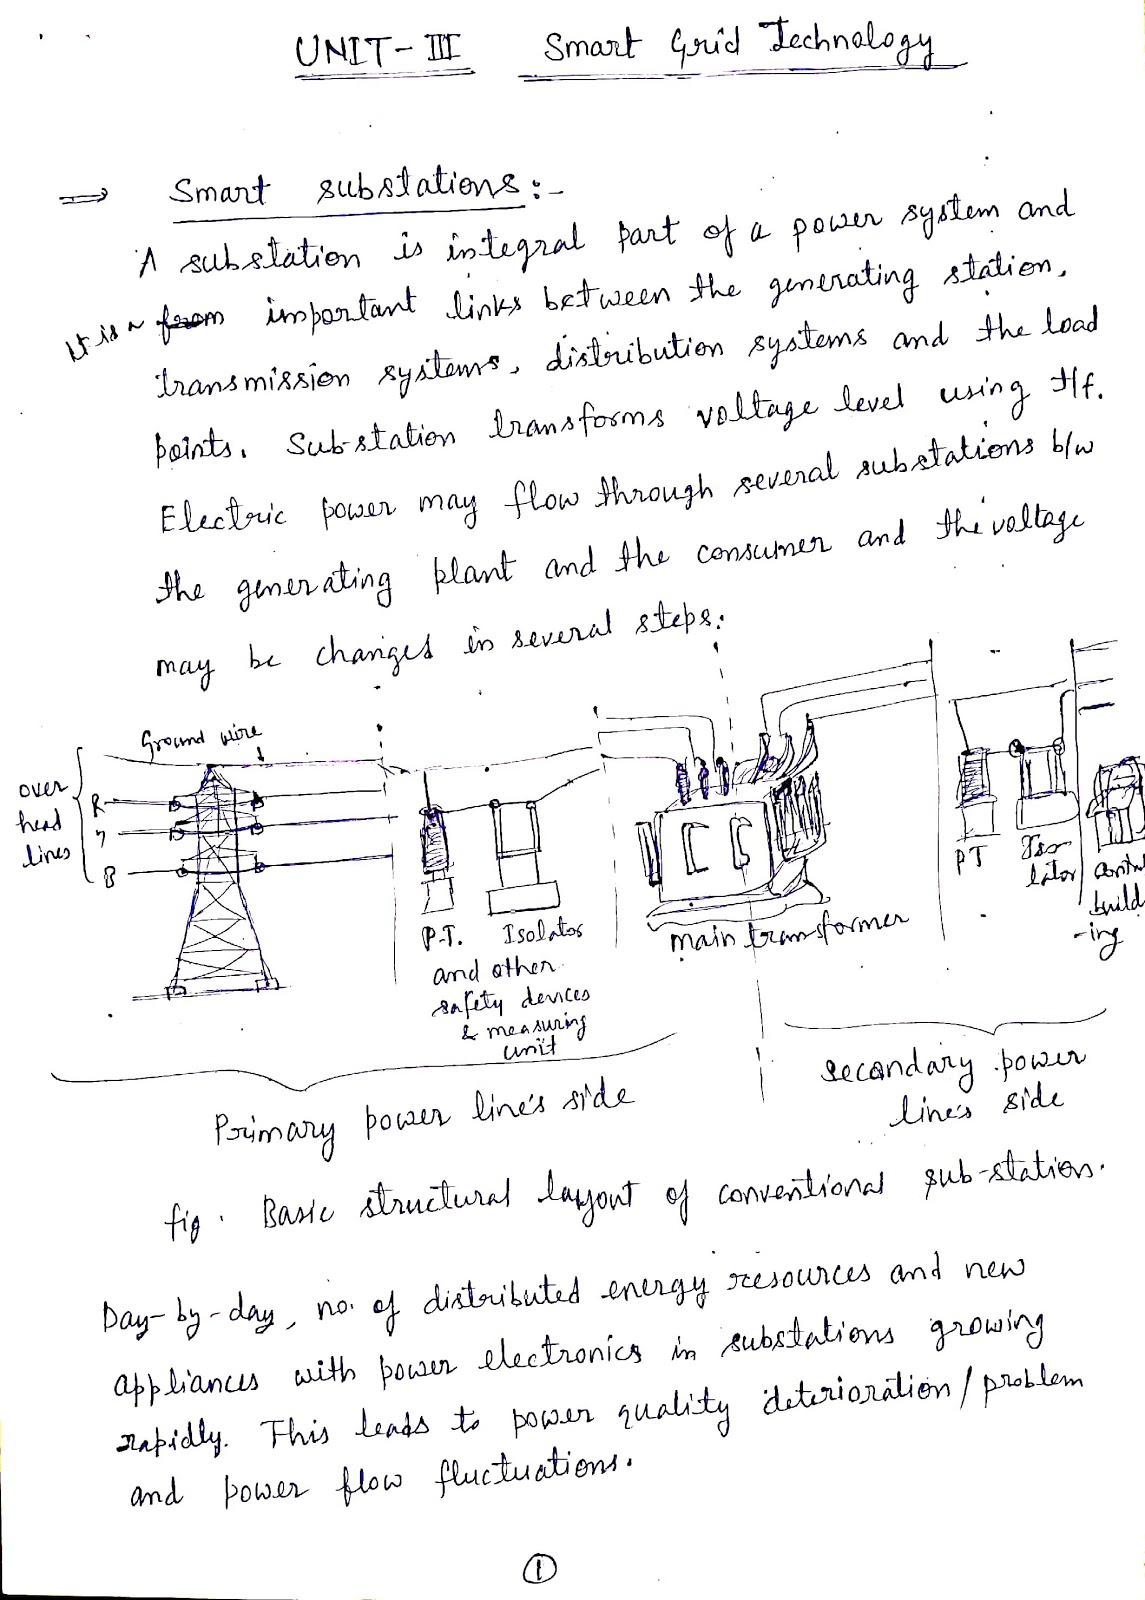 UNIT-III Smart Grid Technology
⇒ Smart substations:-
A substation is integral part of a power system and
It is ~ from important links between the generating station,
transmission systems, distribution systems and the load
points. Sub-station transforms voltage level using t/f.
Electric power may flow through several substations b/w
the generating plant and the consumer and the voltage
may be changed in several steps.
Ground wire
over
head
lines
R
Y
B
P.T. Isolator
and other
safety devices
& measuring
unit
main transformer
PT
Iso
lator
Control
build
-ing
Primary power line's side
secondary power
line's side
fig. Basic structural layout of conventional sub-station.
Day-by-day, no. of distributed energy resources and new
appliances with power electronics in substations growing
rapidly. This leads to power quality deterioration/problem
and power flow fluctuations.
1